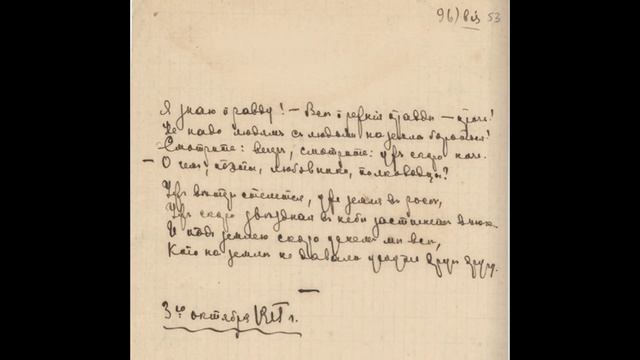 96) 53
Я знаю правду! – Всѣ прежнія правды – прочь!
Не надо людямъ съ людьми на землѣ бороться!
Смотрите: вечеръ, смотрите: ужъ скоро ночь.
– О чемъ, поэты, любовники, полководцы?
Ужъ вѣтеръ стелется, уже земля въ росѣ,
Ужъ скоро звѣздная въ небѣ застынетъ вьюга.
И подъ землею скоро уснемъ мы всѣ,
Кто на землѣ не давали уснуть другъ другу.
3го октября г.